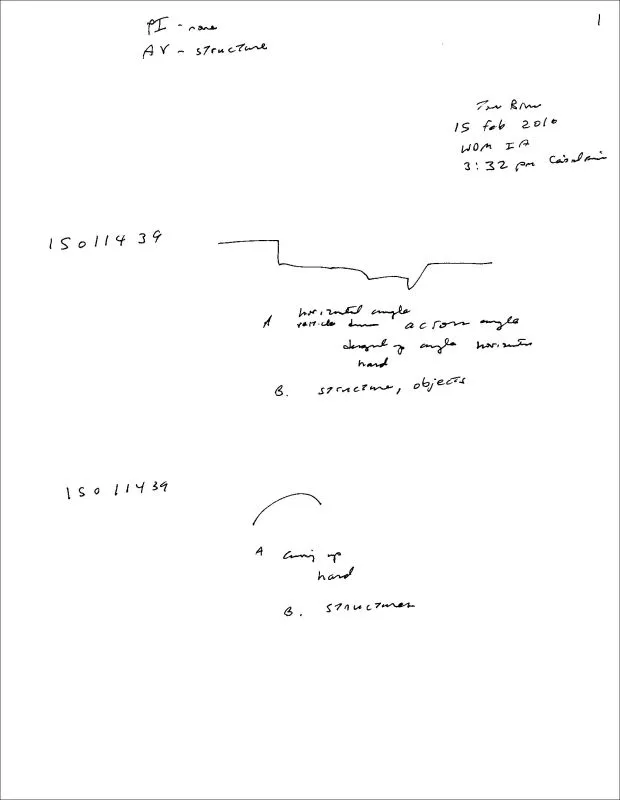 1
PI - none
AV - structure
15 Feb 2010
WDM IA
3:32 pm
15011439
A horizontal angle
vertical down across angle
diagonal up angle horizontal
hard
B. structure, objects
15011439
A curving up
hard
B. structures